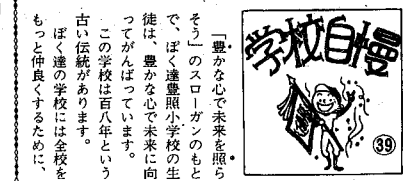 学校自慢
㊴
「豊かな心で未来を照ら
そう」のスローガンのもと
で、ぼく達豊照小学校の生
徒は、豊かな心で未来に向
ってがんばっています。
この学校は百八年という
古い伝統があります。
ぼく達の学校には全校を
もっと仲良くするために、